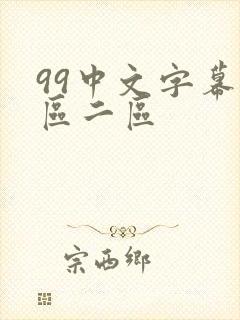 99中文字幕
區二區
宗西鄉